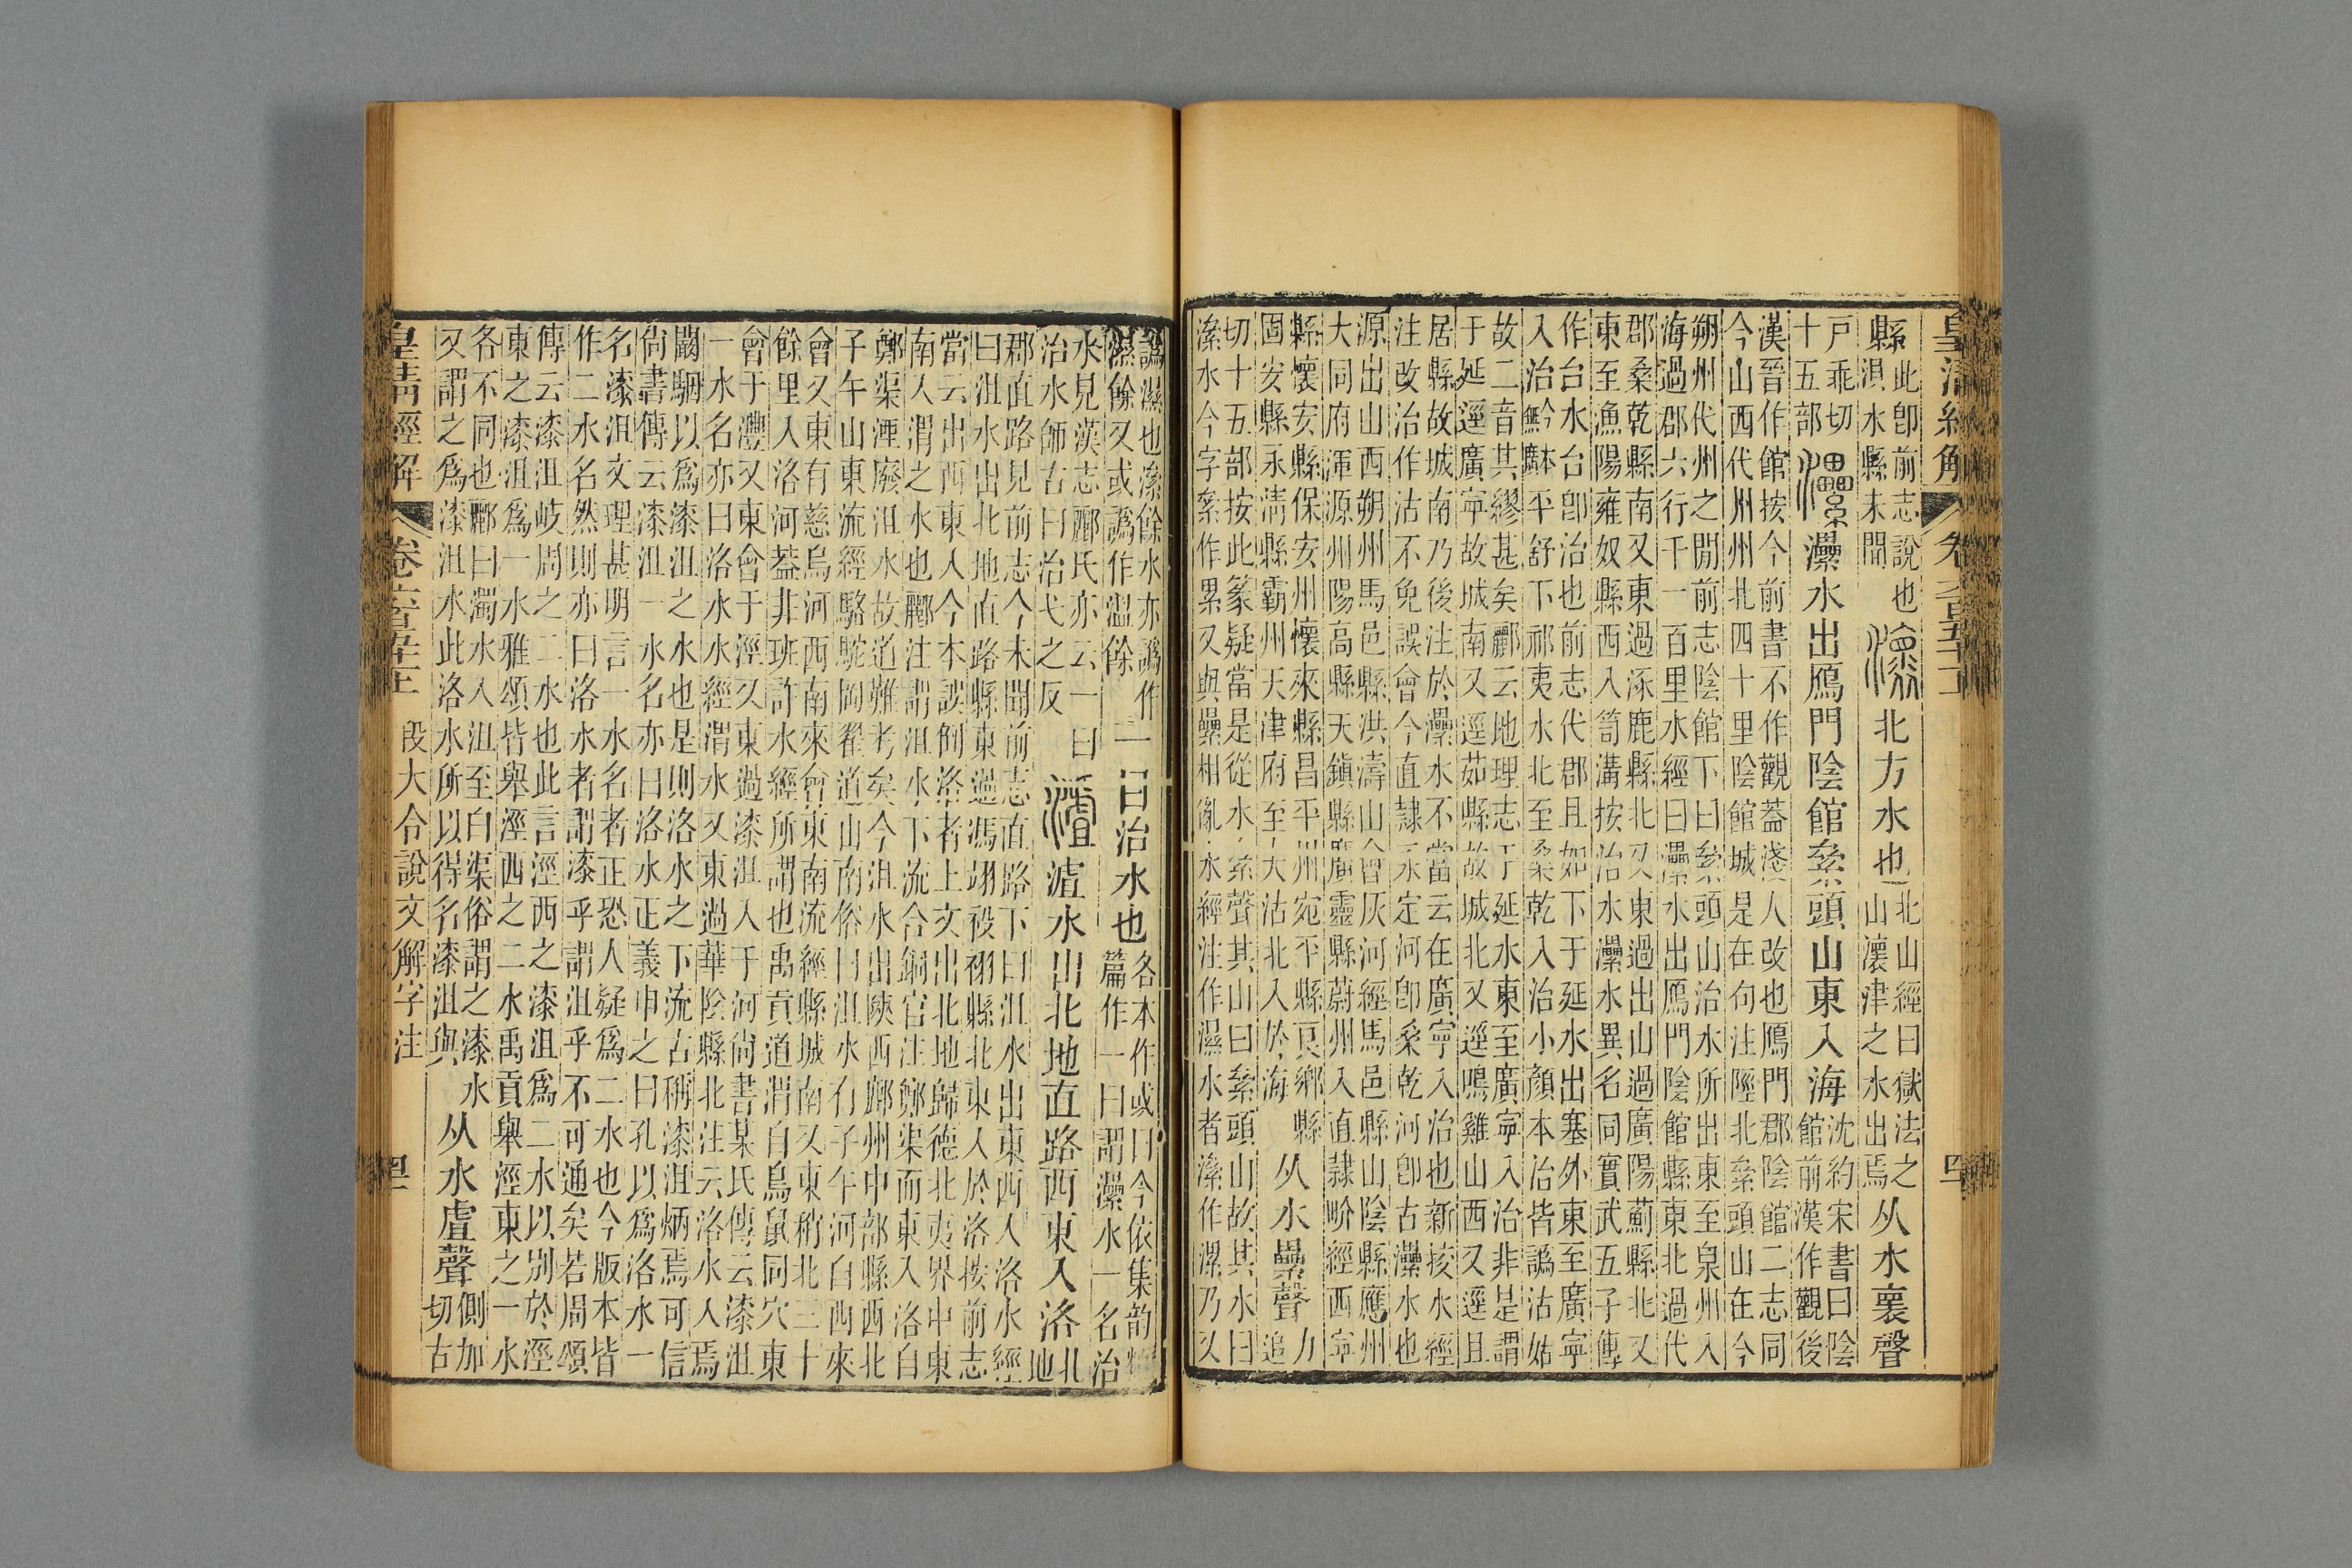 皇清經解
縣
此卽前志說也
湏水縣未聞
北方水也
北山經曰獄法之
山瀤津之水出焉
从水褱聲
戶乖切
十五部
灅水出鴈門陰館絫頭山東入海
沈約宋書曰陰
館前漢作觀後
漢晉作館按今前書不作觀蓋淺人改也鴈門郡陰館二志同
今山西代州州北四十里陰館城是在句注陘北絫頭山在今
朔州代州之閒前志陰館下曰絫頭山治水所出東至泉州入
海過郡六行千一百里水經曰灅水出鴈門陰館縣東北過代
郡桑乾縣南又東過涿鹿縣北又東過出山過廣陽薊縣北又
東至漁陽雍奴縣西入笥溝按治水灅水異名同實武五子傳
作台水台卽治也前志代郡且如下于延水出塞外東至廣寧
入治本平舒下祁夷水北至桑乾入治小顏本治皆譌沽姑
故二音其繆甚矣酈云地理志于延水東至廣寧入治非是謂
于延逕廣寧故城南又逕茹縣故城北又逕鳴雞山西又逕且
居縣故城南乃後注於灅水不當云在廣寧入治也新挍水經
注改治作沽不免誤會今直隷永定河卽桑乾河卽古灅水也
源出山西朔州馬邑縣洪濤山會灰河經馬邑縣山陰縣應州
大同府渾源州陽高縣天鎮縣廣靈縣蔚州入直隷畍經西寧
縣懷安縣保安州懷來縣昌平州宛平縣良鄉縣
固安縣永清縣霸州天津府至大沽北入於海
从水纍聲
力
追
切十五部按此篆疑當是從水絫聲其山曰絫頭山故其水曰
㶟水今字絫作累又與纍相亂水經注作濕水者㶟作漯乃又
譌濕也㶟餘水亦譌作
濕餘又或譌作溫餘
一曰治水也
各本作或曰今依集韵類
篇作一曰謂灅水一名治
水見漢志酈氏亦云一曰
治水師古曰治弋之反
瀘水出北地直路西東入洛
北
地
郡直路見前志今未聞前志直路下曰沮水出東西入洛水經
曰沮水出北地直路縣東過馮翊祋祤縣北東入於洛按前志
當云出西東入今本誤倒洛者上文出北地歸德北夷界中東
南入渭之水也酈注謂沮水下流合銅官注鄭渠而東入洛自
鄭渠湮廢沮水故道難考矣今沮水出陝西鄜州中部縣西北
子午山東流經駱駝岡翟道山南俗曰沮水有子午河自西來
會又東有慈烏河西南來會東南流經縣城南又東稍北三十
餘里入洛河蓋非班許水經所謂也禹貢道渭自鳥鼠同穴東
會于灃又東會于涇又東過漆沮入于河尙書某氏傳云漆沮
一水名亦曰洛水水經渭水又東過華陰縣北注云洛水入焉
闞駰以爲漆沮之水也是則洛水之下流古稱漆沮炳焉可信
尙書傳云漆沮一水名亦曰洛水正義申之曰孔以爲洛水一
名漆沮文理甚明言一水名者正恐人疑爲二水也今版本皆
作二水名然則亦曰洛水者謂漆乎謂沮乎不可通矣若周頌
傳云漆沮岐周之二水也此言涇西之漆沮爲二水以別於涇
東之漆沮爲一水雅頌皆舉涇西之二水禹貢舉涇東之一水
各不同也酈曰濁水入沮至白渠俗謂之漆水
又謂之爲漆沮水此洛水所以得名漆沮與
从水虘聲
側加
切古
皇淸經解 段大令說文解字注